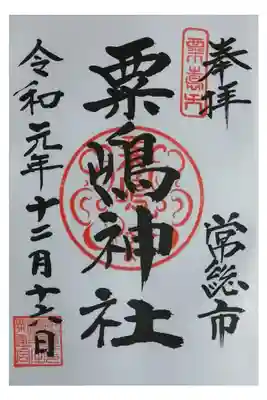 奉拝
常総市
粟嶋神社
令和元年十二月十六日